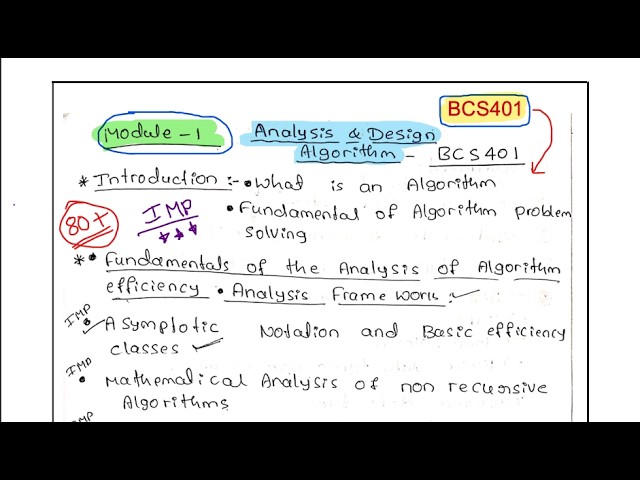 BCS401
Module - 1
Analysis & Design
Algorithm - BCS401
* Introduction :- • What is an Algorithm
80+
IMP
• Fundamental of Algorithm problem
solving
* • Fundamentals of the Analysis of Algorithm
efficiency • Analysis Frame work :
IMP
• Asymptotic Notation and Basic efficiency
classes
IMP
• Mathematical Analysis of non recursive
Algorithms
IMP